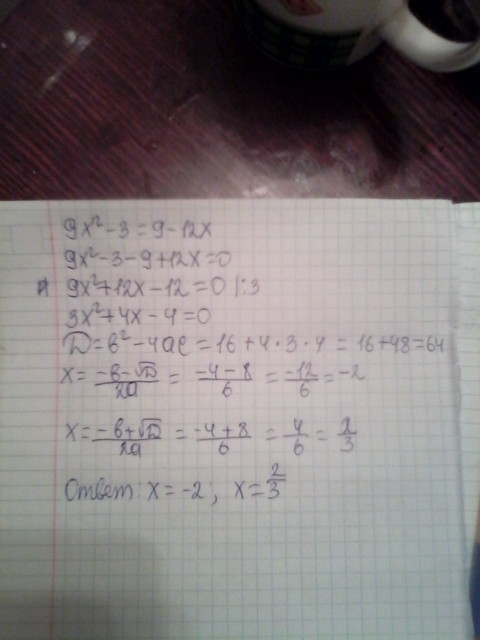 9x² - 3 = 9 - 12x
9x² - 3 - 9 + 12x = 0
9x² + 12x - 12 = 0 | : 3
3x² + 4x - 4 = 0
D = b² - 4ac = 16 + 4 · 3 · 4 = 16 + 48 = 64
x = (-b - √D)/2a = (-4 - 8)/6 = -12/6 = -2
x = (-b + √D)/2a = (-4 + 8)/6 = 4/6 = 2/3
Ответ: x = -2; x = 2/3